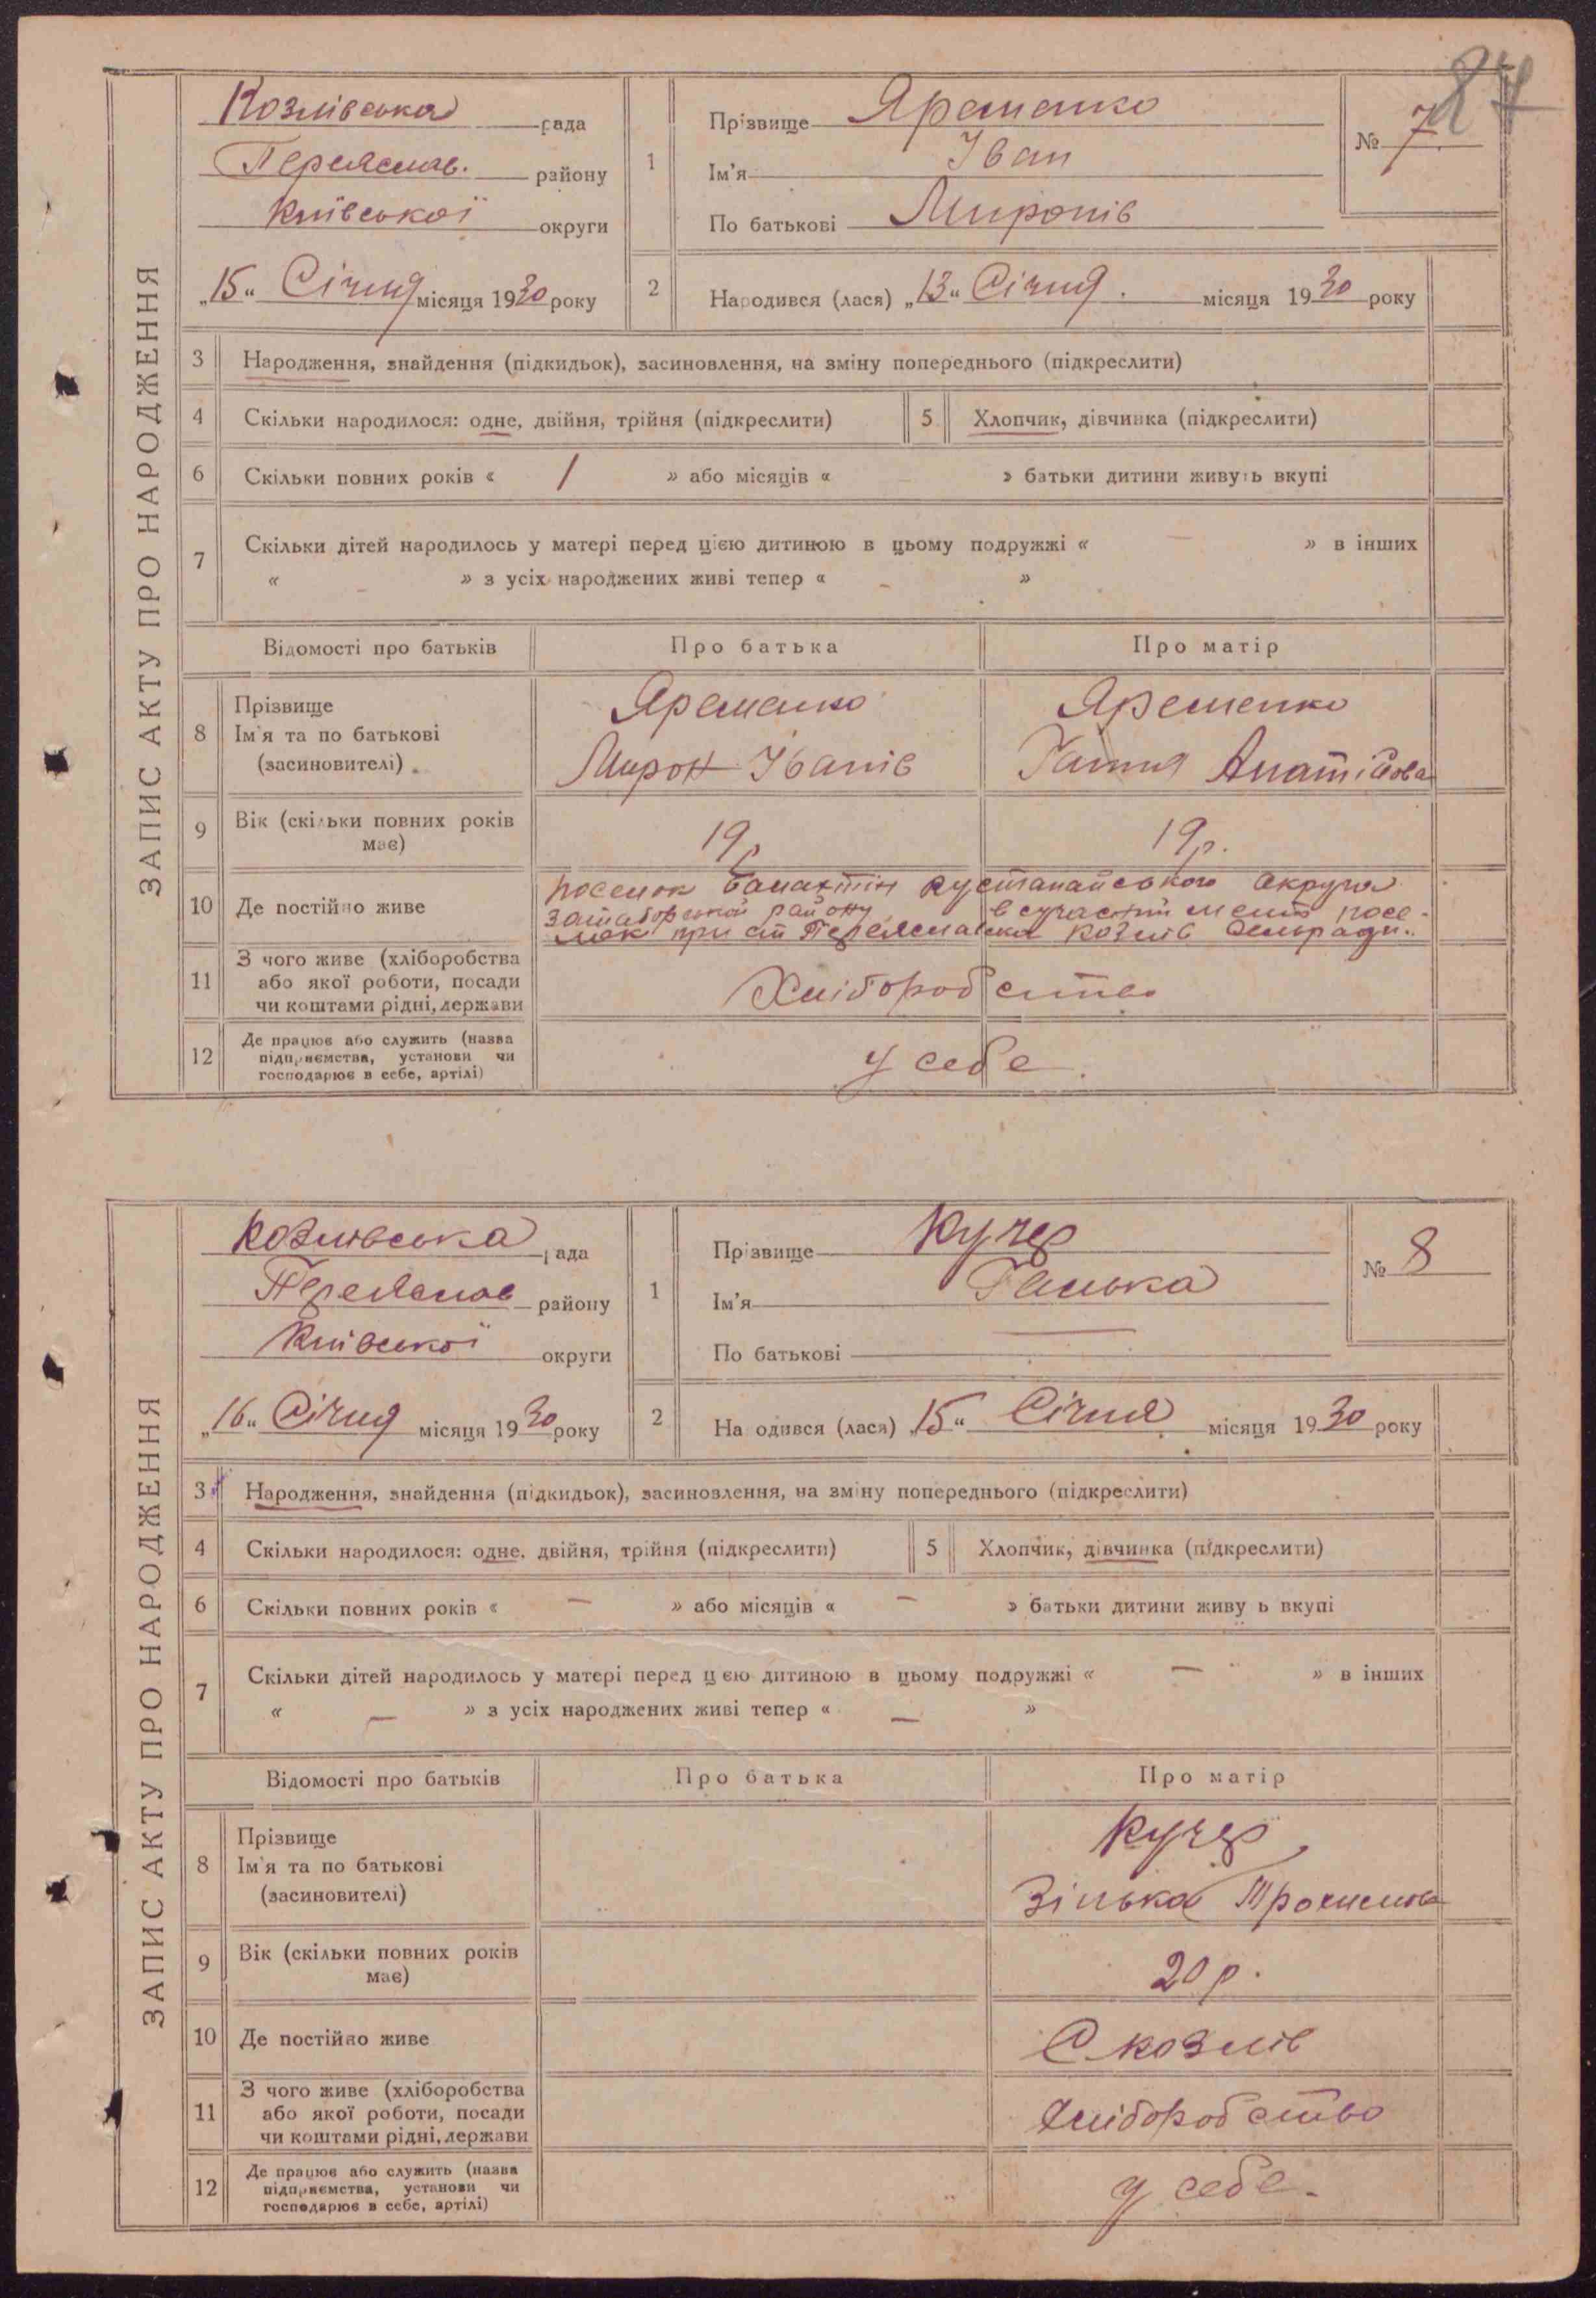 87
ЗАПИС АКТУ ПРО НАРОДЖЕННЯ
Козлівська рада
Переяслав. району
Київської округи
„15“ Січня місяця 1930 року
1
Прізвище Яременко
Ім'я Іван
По батькові Миронів
№ 7.
2
Народився (лася) „13“ Січня. місяця 1930 року
3 Народження, знайдення (підкидьок), засиновлення, на зміну попереднього (підкреслити)
4 Скільки народилося: одне, двійня, трійня (підкреслити)
5 Хлопчик, дівчинка (підкреслити)
6 Скільки повних років « 1 » або місяців « » батьки дитини живуть вкупі
7 Скільки дітей народилось у матері перед цією дитиною в цьому подружжі « — » в інших
« – » з усіх народжених живі тепер « – »
Відомості про батьків
Про батька
Про матір
8 Прізвище
Ім'я та по батькові
(засиновителі)
Яременко
Мирон Іванів
Яременко
Ганна
9 Вік (скільки повних років
має)
19 р
19 р.
10 Де постійно живе
поселок Кустанайського округа
району в
при ст Переяславська Козлів сельради..
11 З чого живе (хліборобства
або якої роботи, посади
чи коштами рідні, держави
Хліборобство
12 Де працює або служить (назва
підприємства, установи чи
господарює в себе, артілі)
у себе.
ЗАПИС АКТУ ПРО НАРОДЖЕННЯ
Козлівська рада
Переяслав району
Київської округи
„16“ Січня місяця 1930 року
1
Прізвище Кучер
Ім'я Галька
По батькові —
№ 8
2
Народився (лася) „15“ Січня місяця 1930 року
3 Народження, знайдення (підкидьок), засиновлення, на зміну попереднього (підкреслити)
4 Скільки народилося: одне, двійня, трійня (підкреслити)
5 Хлопчик, дівчинка (підкреслити)
6 Скільки повних років « — » або місяців « — » батьки дитини живуть вкупі
7 Скільки дітей народилось у матері перед цією дитиною в цьому подружжі « — » в інших
« — » з усіх народжених живі тепер « — »
Відомості про батьків
Про батька
Про матір
8 Прізвище
Ім'я та по батькові
(засиновителі)
Кучер
Зінька Трохимова
9 Вік (скільки повних років
має)
20 р.
10 Де постійно живе
С Козлів
11 З чого живе (хліборобства
або якої роботи, посади
чи коштами рідні, держави
Хліборобство
12 Де працює або служить (назва
підприємства, установи чи
господарює в себе, артілі)
у себе.